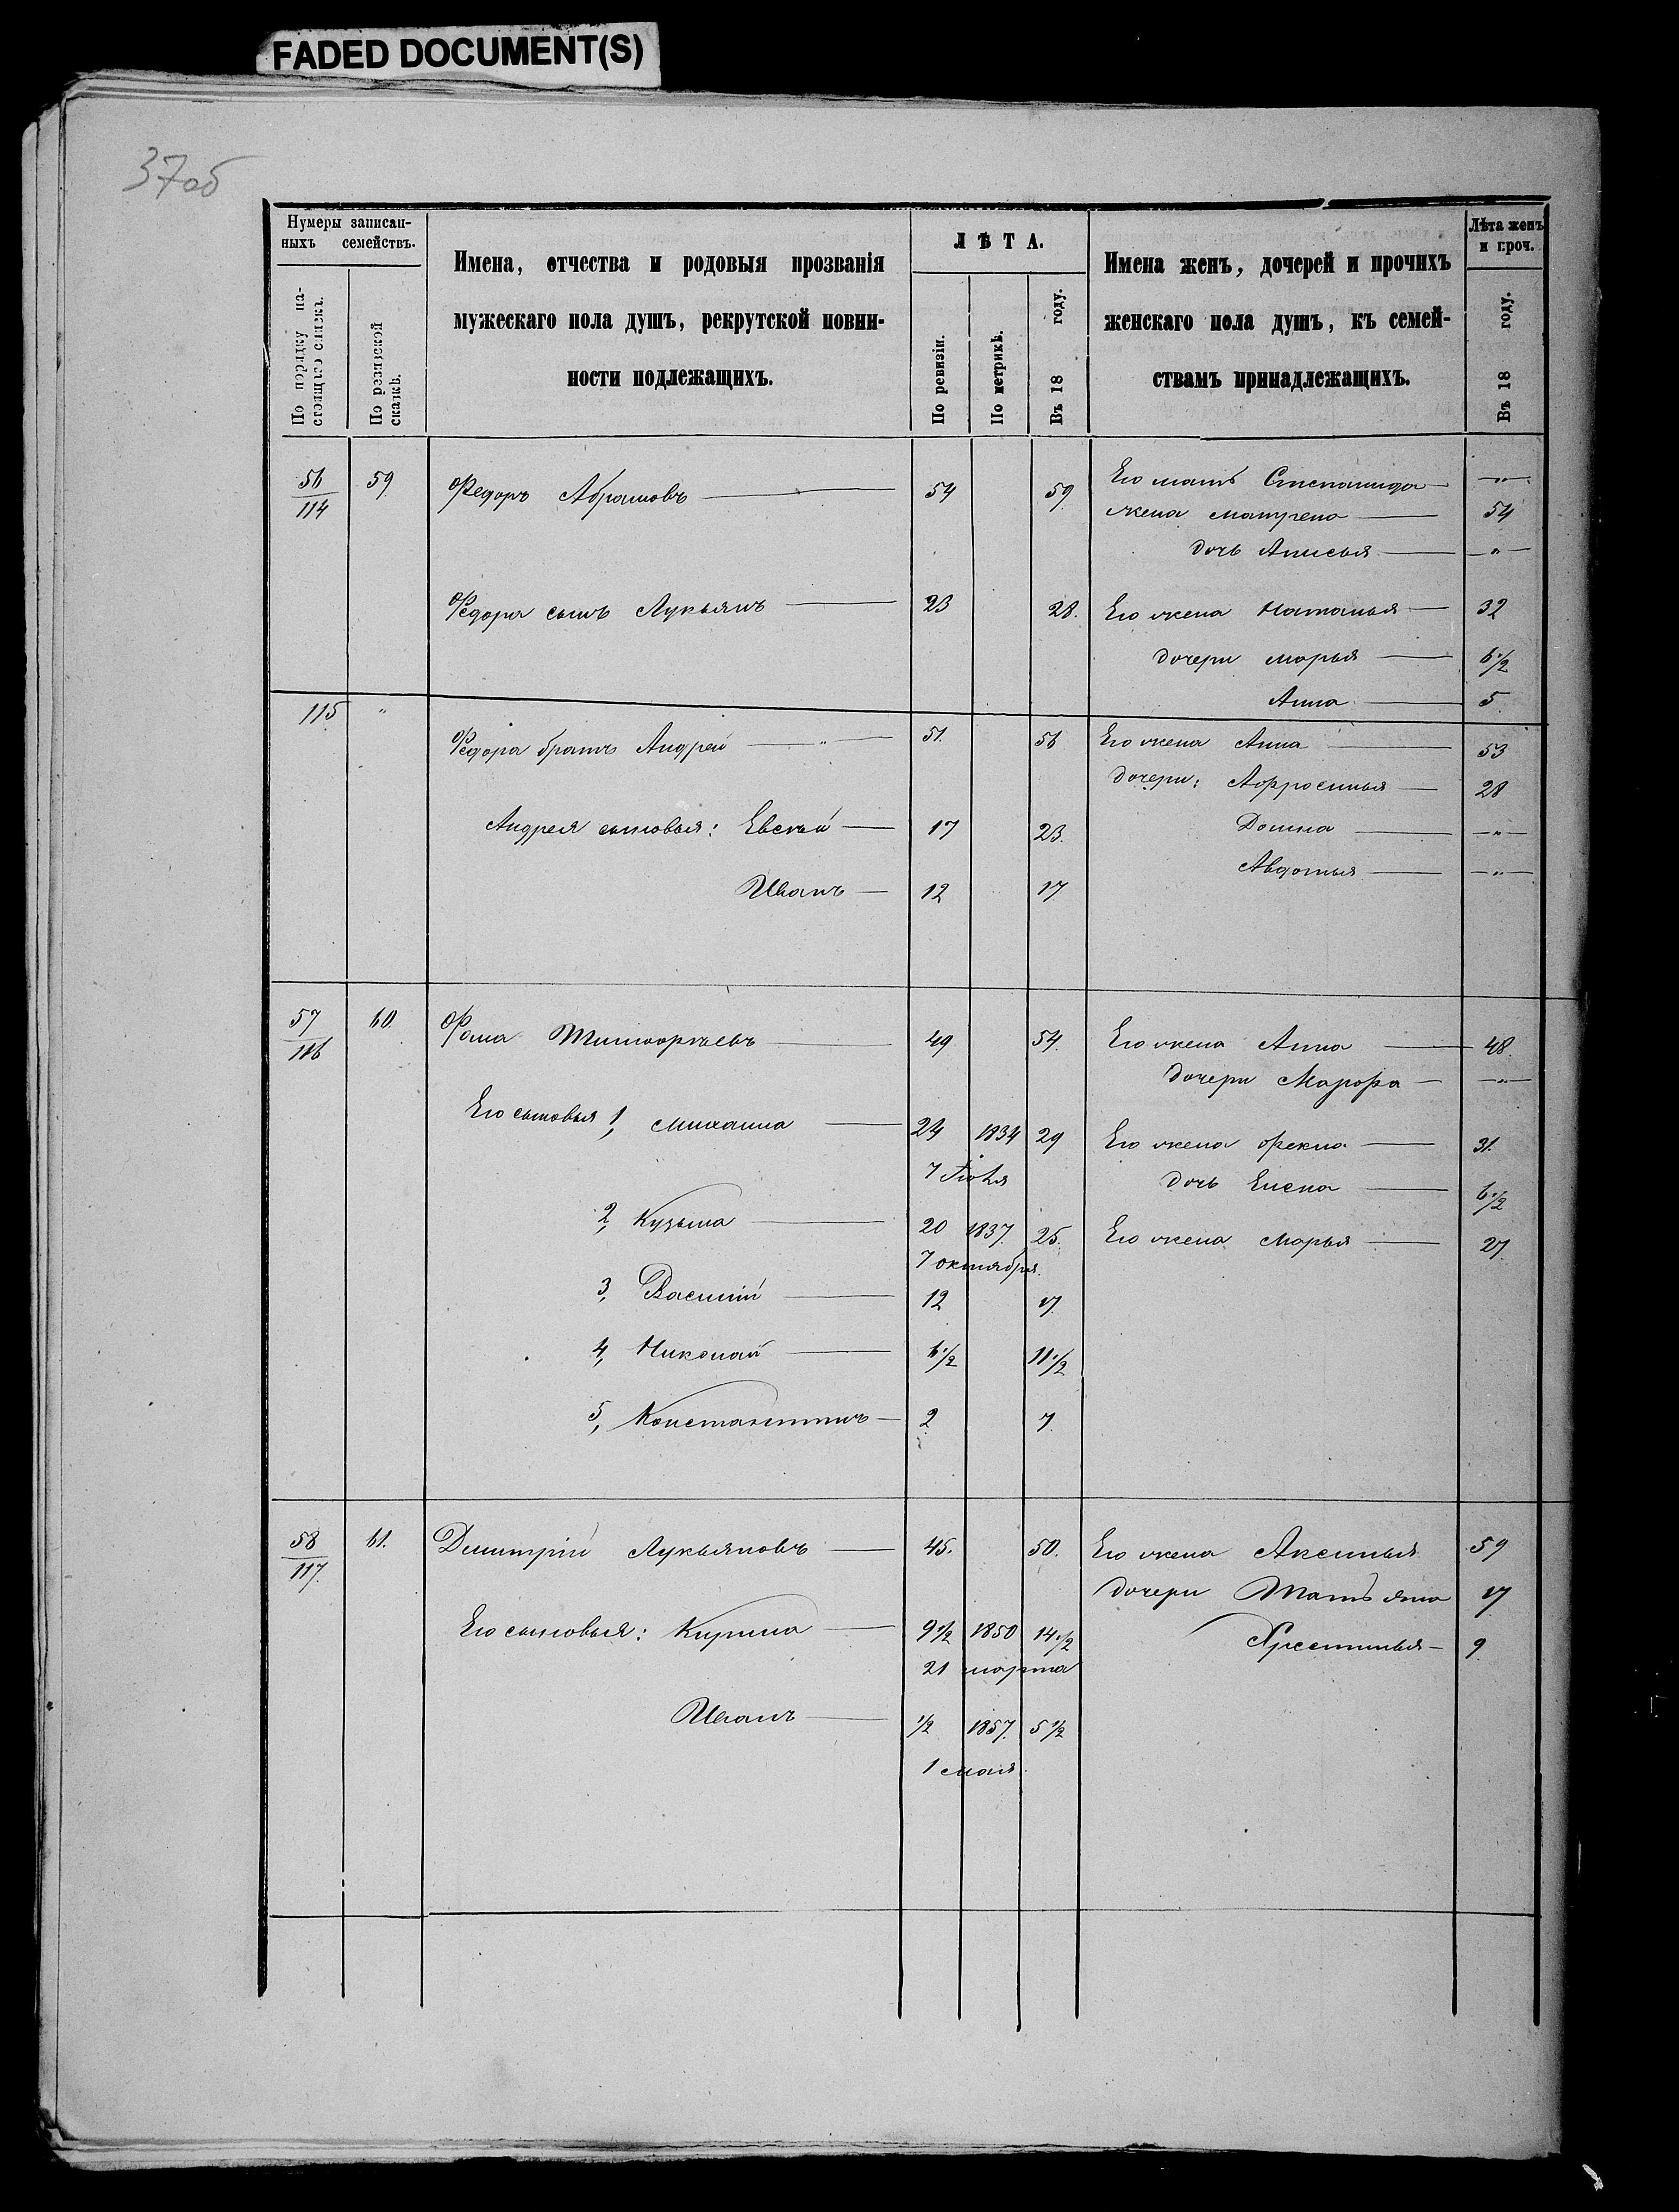 FADED DOCUMENT(S)
37об
Нумеры записан-
ныхъ семействъ.
По порядку на-
стоящаго списка.
По ревизской
сказкѣ.
Имена, отчества и родовыя прозванія
мужескаго пола душъ, рекрутской повин-
ности подлежащихъ.
ЛѢТА.
По ревизіи.
По метрикѣ.
Въ 18 году.
Имена женъ, дочерей и прочихъ
женскаго пола душъ, къ семей-
ствамъ принадлежащихъ.
Лѣта женъ
и проч.
Въ 18 году.
56/114 59 Федоръ Абрамовъ — 54 59 Его мать Степанида — „
жена Матрена — 54
дочь Анисья — „
Федора сынъ Лукьянъ — 23 28. Его жена Наталья — 32
дочери Марья — 6½
Анна — 5
115 „ Федора братъ Андрей — „ — 51. 56 Его жена Анна — 53
дочери: Афросинья — 28
Андрея сыновья: Евсѣй — 17 23. Домна — „
Авдотья — „
Иванъ — 12 17
57/116 60. Фома Тимофѣевъ — 49 54. Его жена Анна — 48.
дочери Марфа — „
Его сыновья 1, Михаила — 24 1834 29 Его жена Фекла — 31.
7 Іюля дочь Елена — 6½
2, Кузьма — 20 1837. 25. Его жена Марья — 27.
7 октября.
3, Василій — 12 17.
4, Николай — 6½ 11½
5, Константинъ — 2 7.
58/117. 61. Дмитрій Лукьяновъ — 45. 50. Его жена Аксинья 59
дочери Татьяна 17
Его сыновья: Кирила — 9½ 1850 14½ Христинья — 9
21 марта
Иванъ — ½ 1857. 5½
1 мая.